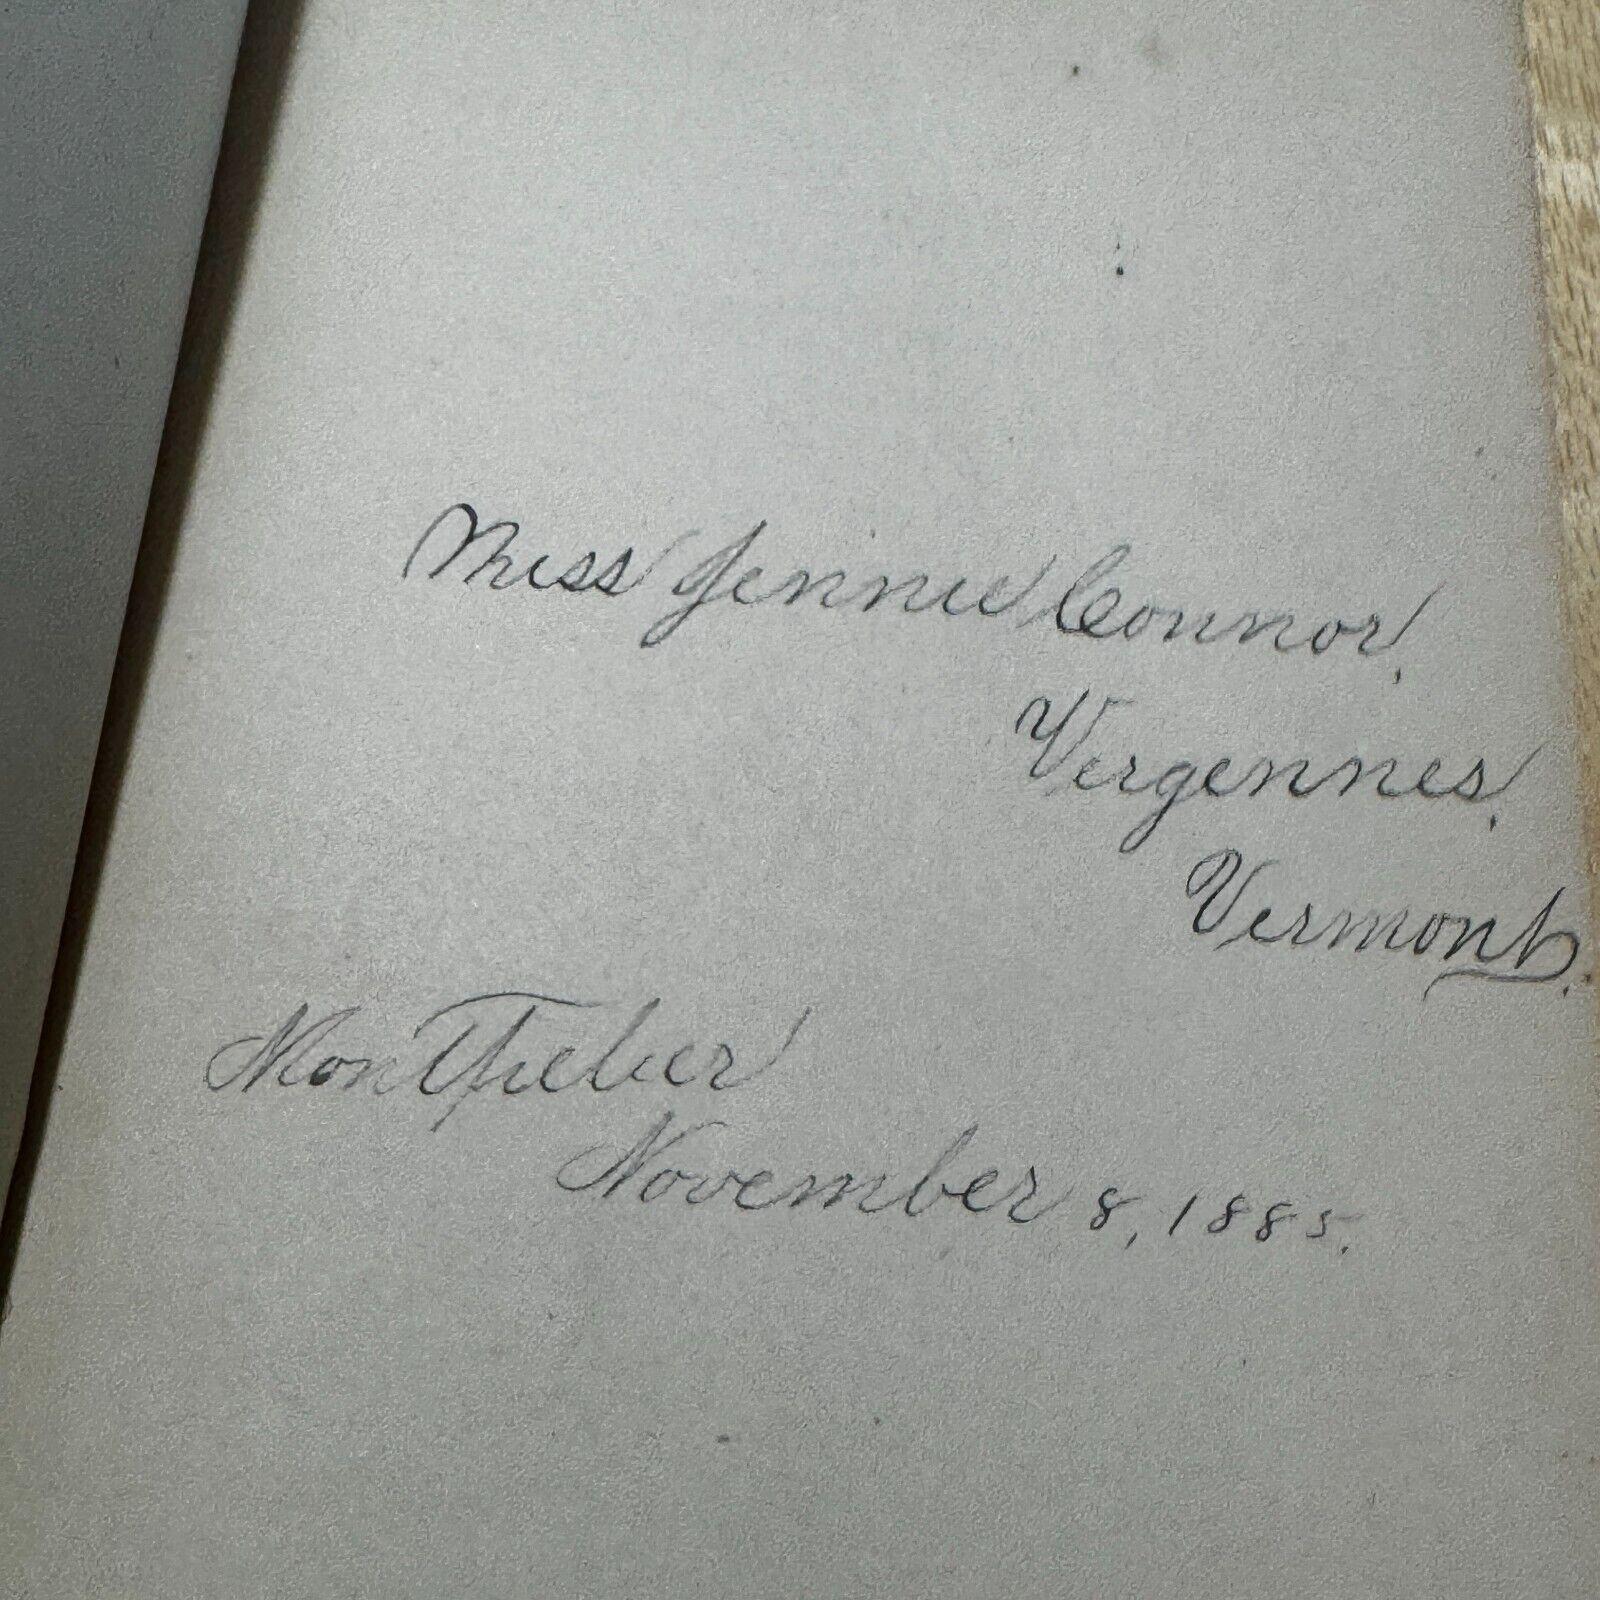 Miss Jennie Connor,
Vergennes,
Vermont.
Montpelier
November 8, 1885.